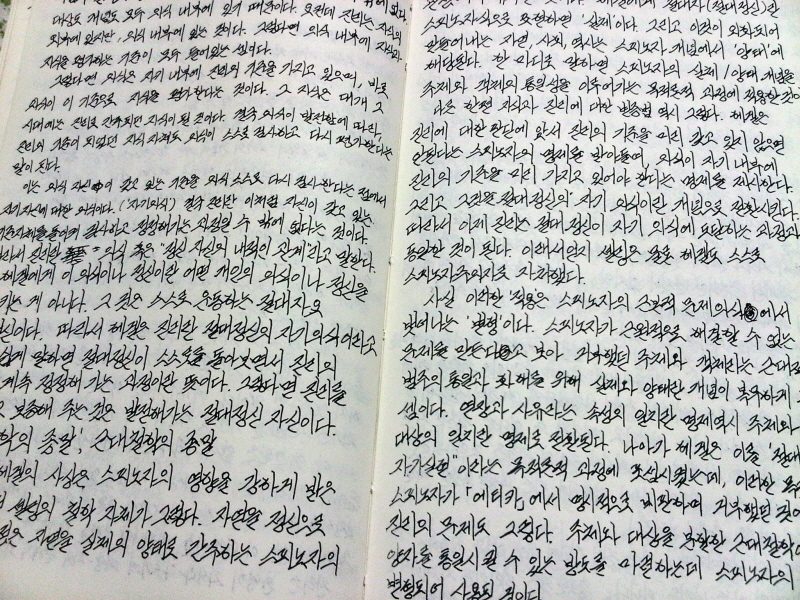 대상도 개념도 모두 의식 내부에 있기 때문이다. 요컨대 진리는 지식의
외부에 있지만, 의식 내부에 있는 것이다. 그렇다면 의식 내부에 지식과
지식을 평가하는 기준이 모두 들어있는 셈이다.
그렇다면 의식은 자기 내부에 진리의 기준을 가지고 있으며, 바로
의식이 이 기준으로 지식을 평가한다는 것이다. 그 지식은 대개 그
시대에는 진리로 간주되던 지식이 된 것이다. 결국 의식이 발전함에 따라,
진리의 기준이 되었던 지식 자체도 의식이 스스로 검사하고 다시 평가한다는
말이 된다.
이는 의식 자신이 갖고 있는 기준을 의식 스스로 다시 검사한다는 점에서
자기 자신에 대한 의식이다. ('자기의식') 결국 진리란 이처럼 자신이 갖고 있는
기준 자체를 돌이켜 검사하고 정정해가는 과정일 수 밖에 없다는 것이다.
따라서 진리란 의식 혹은 "정신 자신의 내적인 관계"라고 말한다.
헤겔에게 이 의식이나 정신이란 어떤 개인의 의식이나 정신을
가리키는 게 아니다. 그것은 스스로 운동하는 절대자요
정신이다. 따라서 헤겔은 진리란 절대정신의 자기의식이라고
쉽게 말하면 절대정신이 스스로를 돌아보면서 진리의
계속 정정해 가는 과정이란 뜻이다. 그렇다면 진리를
보증해 주는 것은 발전해가는 절대정신 자신이다.
철학의 종말', 근대철학의 종말
헤겔의 사상은 스피노자의 영향을 강하게 받은
셸링의 철학 자체가 그렇다. 자연을 정신으로
혹은 자연을 실체의 양태로 간주하는 스피노자의
절대자(절대정신)란
스피노자식으로 표현하면 '실체'이다. 그리고 이것이 외화되어
만들어내는 자연, 사회, 역사는 스피노자 개념에서 '양태'에
해당된다. 한 마디로 말하면 스피노자의 실체/양태 개념을
주체와 객체의 통일성을 이루어가는 목적론적 과정에 적용한 것이
다른 한편 지식과 진리에 대한 변증법 역시 그렇다. 헤겔은
진리에 대한 판단에 앞서 진리의 기준을 미리 갖고 있지 않으면
안된다는 스피노자의 명제를 받아들여, 의식이 자기 내부에
진리의 기준을 미리 가지고 있어야 한다는 명제를 제시한다.
그리고 그것을 절대정신의 자기 의식이란 개념으로 전환시킨다.
따라서 이제 진리는 절대 정신이 자기 의식에 도달하는 과정과
동일한 것이 된다. 이래서인지 셸링은 물론 헤겔도 스스로
스피노자주의자로 자처했다.
사실 이러한 적용은 스피노자의 근본적 문제의식에서
벗어나는 '변형'이다. 스피노자가 근원적으로 해결할 수 없는
문제를 만든다고 보아 거부했던 주체와 객체라는 근대적
범주의 통일과 화해를 위해 실체와 양태란 개념이 복무하게 된
셈이다. 연장과 사유라는 속성의 일치란 명제 역시 주체와
대상의 일치란 명제로 전환된다. 나아가 헤겔은 이를 '절대
자기실현"이라는 목적론적 과정에 포섭시켰는데, 이러한 목적
스피노자가 「에티카」에서 명시적으로 비판하며 거부했던 것이
진리의 문제도 그렇다. 주체와 대상을 분할한 근대철학이
양자를 통일시킬 수 있는 방도를 마련하는데 스피노자의
변형되어 사용된 것이다